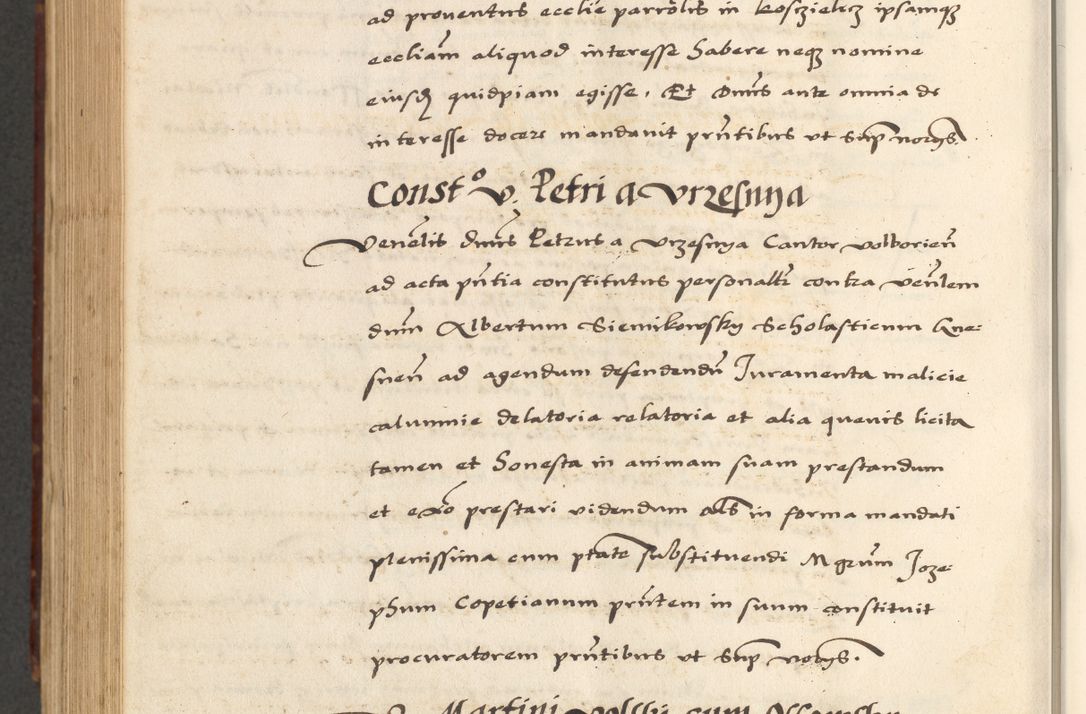 ad proventus ecclie parrolis in koszielecz ipsamqz
eccliam aliquod interesse habere neqz nomine
eiusd quidpiam egisse. Et Dnus ante omnia de
interesse docere mandavit pntibus ut sup nobs.
Const° v. Petri a Vrzesnya
Venelis dnus Petrus a Vrzesnya Cantor volborien
ad acta pntia constitutus personalr contra venlem
dnm Albertum Siemikowsky Scholasticum Gne-
snen ad agendum defendendu Juramenta malicie
calumnie delatoria relatoria et alia quevis licita
tamen et honesta in animam suam prestandum
et exo prestari videndum als in forma mandati
plenissima cum ptate substituendi Mgrum Joze-
phum Copetianum pntem in suum constituit
procuratorem pntibus ut sup nobs.
Martini cum